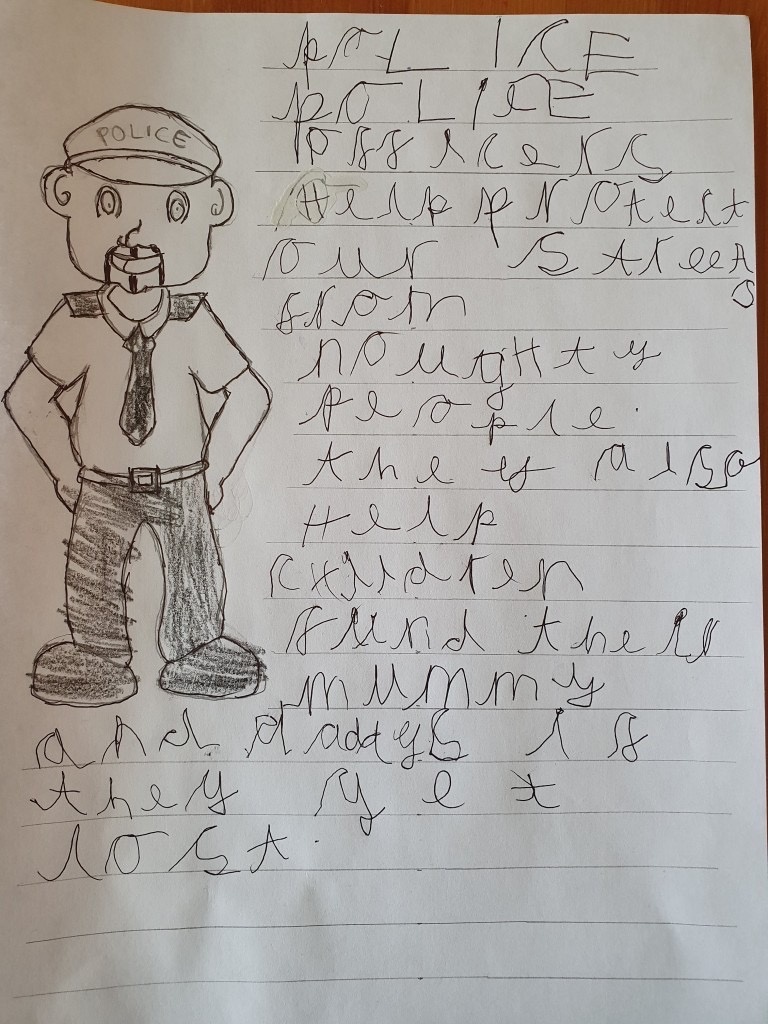 POLICE
POLICE
POLICE
officers
Help protest
our streets
from
noughty
people.
they also
Help
cHildren
fund their
mummy
and daddys if
they get
lost.